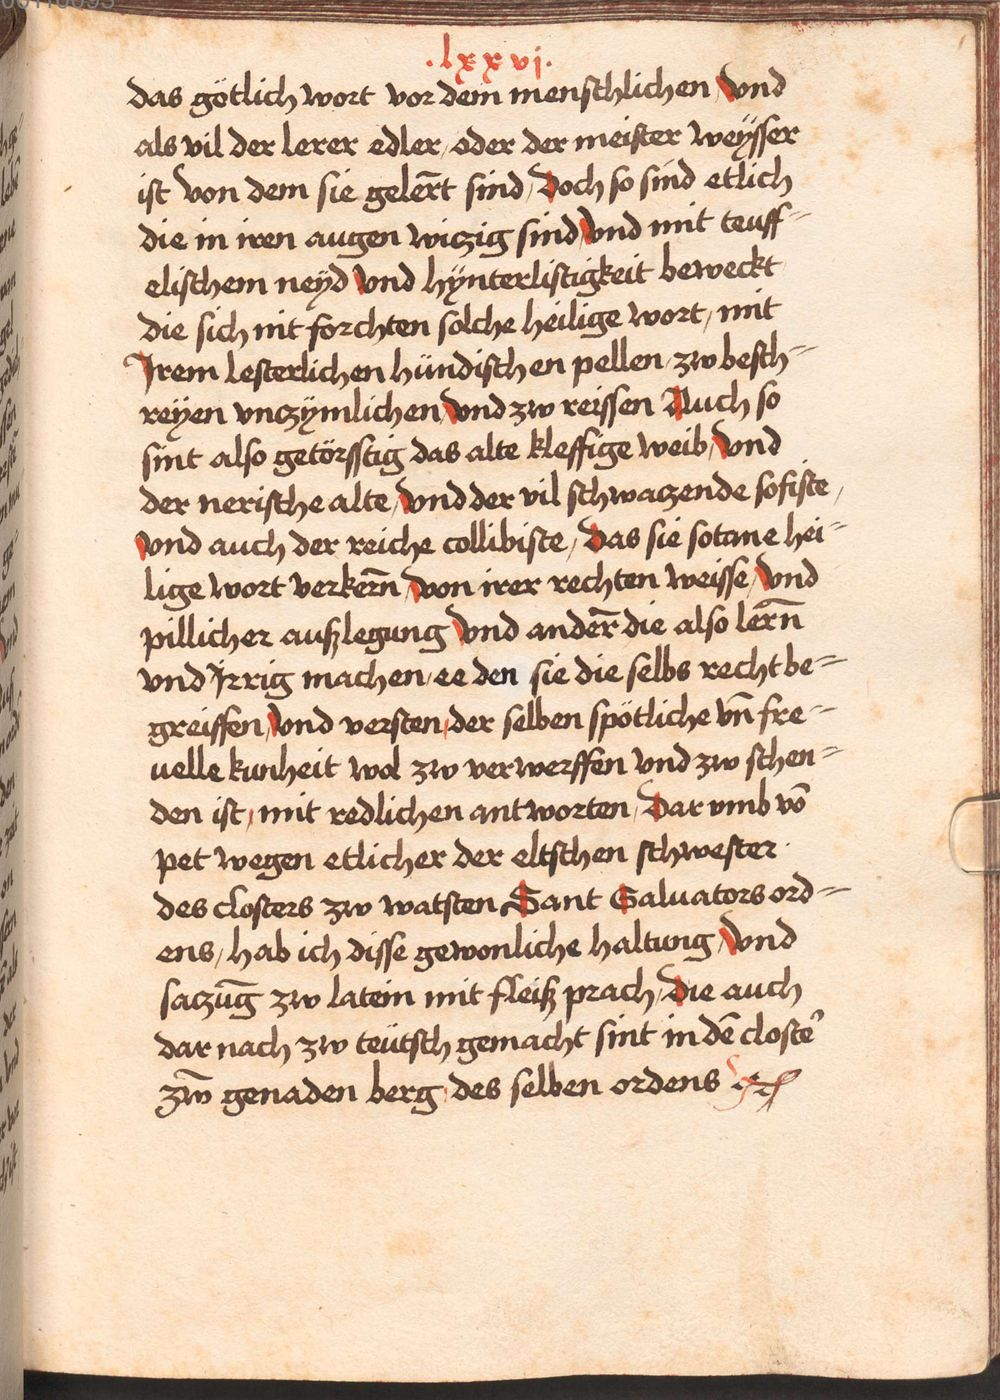 .lxxvj.
das götlich wort vor dem menschlichen Vnd
als vil der lerer edler, oder der meister weÿsser
ist von dem sie geler̄t sind, Doch so sind etlich
die in iren augen wiczig sind Vnd mit teuff=
elischem neÿd Vnd hÿnterlistigkeit beweckt
die sich nit forchten solche heilige wort, mit
Jrem lesterlichen hündischen pellen, zw besch=
reÿen vnczÿmlichen, Vnd zw reissen Auch so
sint also getörsstig das alte kleffige weib, Vnd
der nerische alte, Vnd der vil schwaczende sofiste,
Vnd auch der reiche collibiste, Das sie sotane hei=
lige wort verkern̄, Von irer rechten weisse, Vnd
pillicher außlegung Vnd ander̄ die also lern̄
vnd Jrrig machen, ee den sie die selbs recht be=
greiffen, Vnd versten, der selben spötliche vn̄ fre=
uelle kunheit wol zw verwerffen vnd zw schen=
den ist, mit redlichen antworten, Dar vmb vō
pet wegen etlicher der eltschen schwester
des closters zw watsten Sant Saluators ord=
ens, hab ich disse gewonliche haltung, Vnd
saczūg zw latein mit fleiß prach, Die auch
dar nach zw teütsch gemacht sint in dē closte᾽
zw̄ genaden berg, des selben ordens